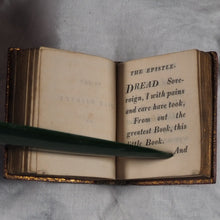 THE EPISTLE.
DREAD Sove-
reign, I with pains
and care have took,
From out the
greatest Book, this
little Book.
And